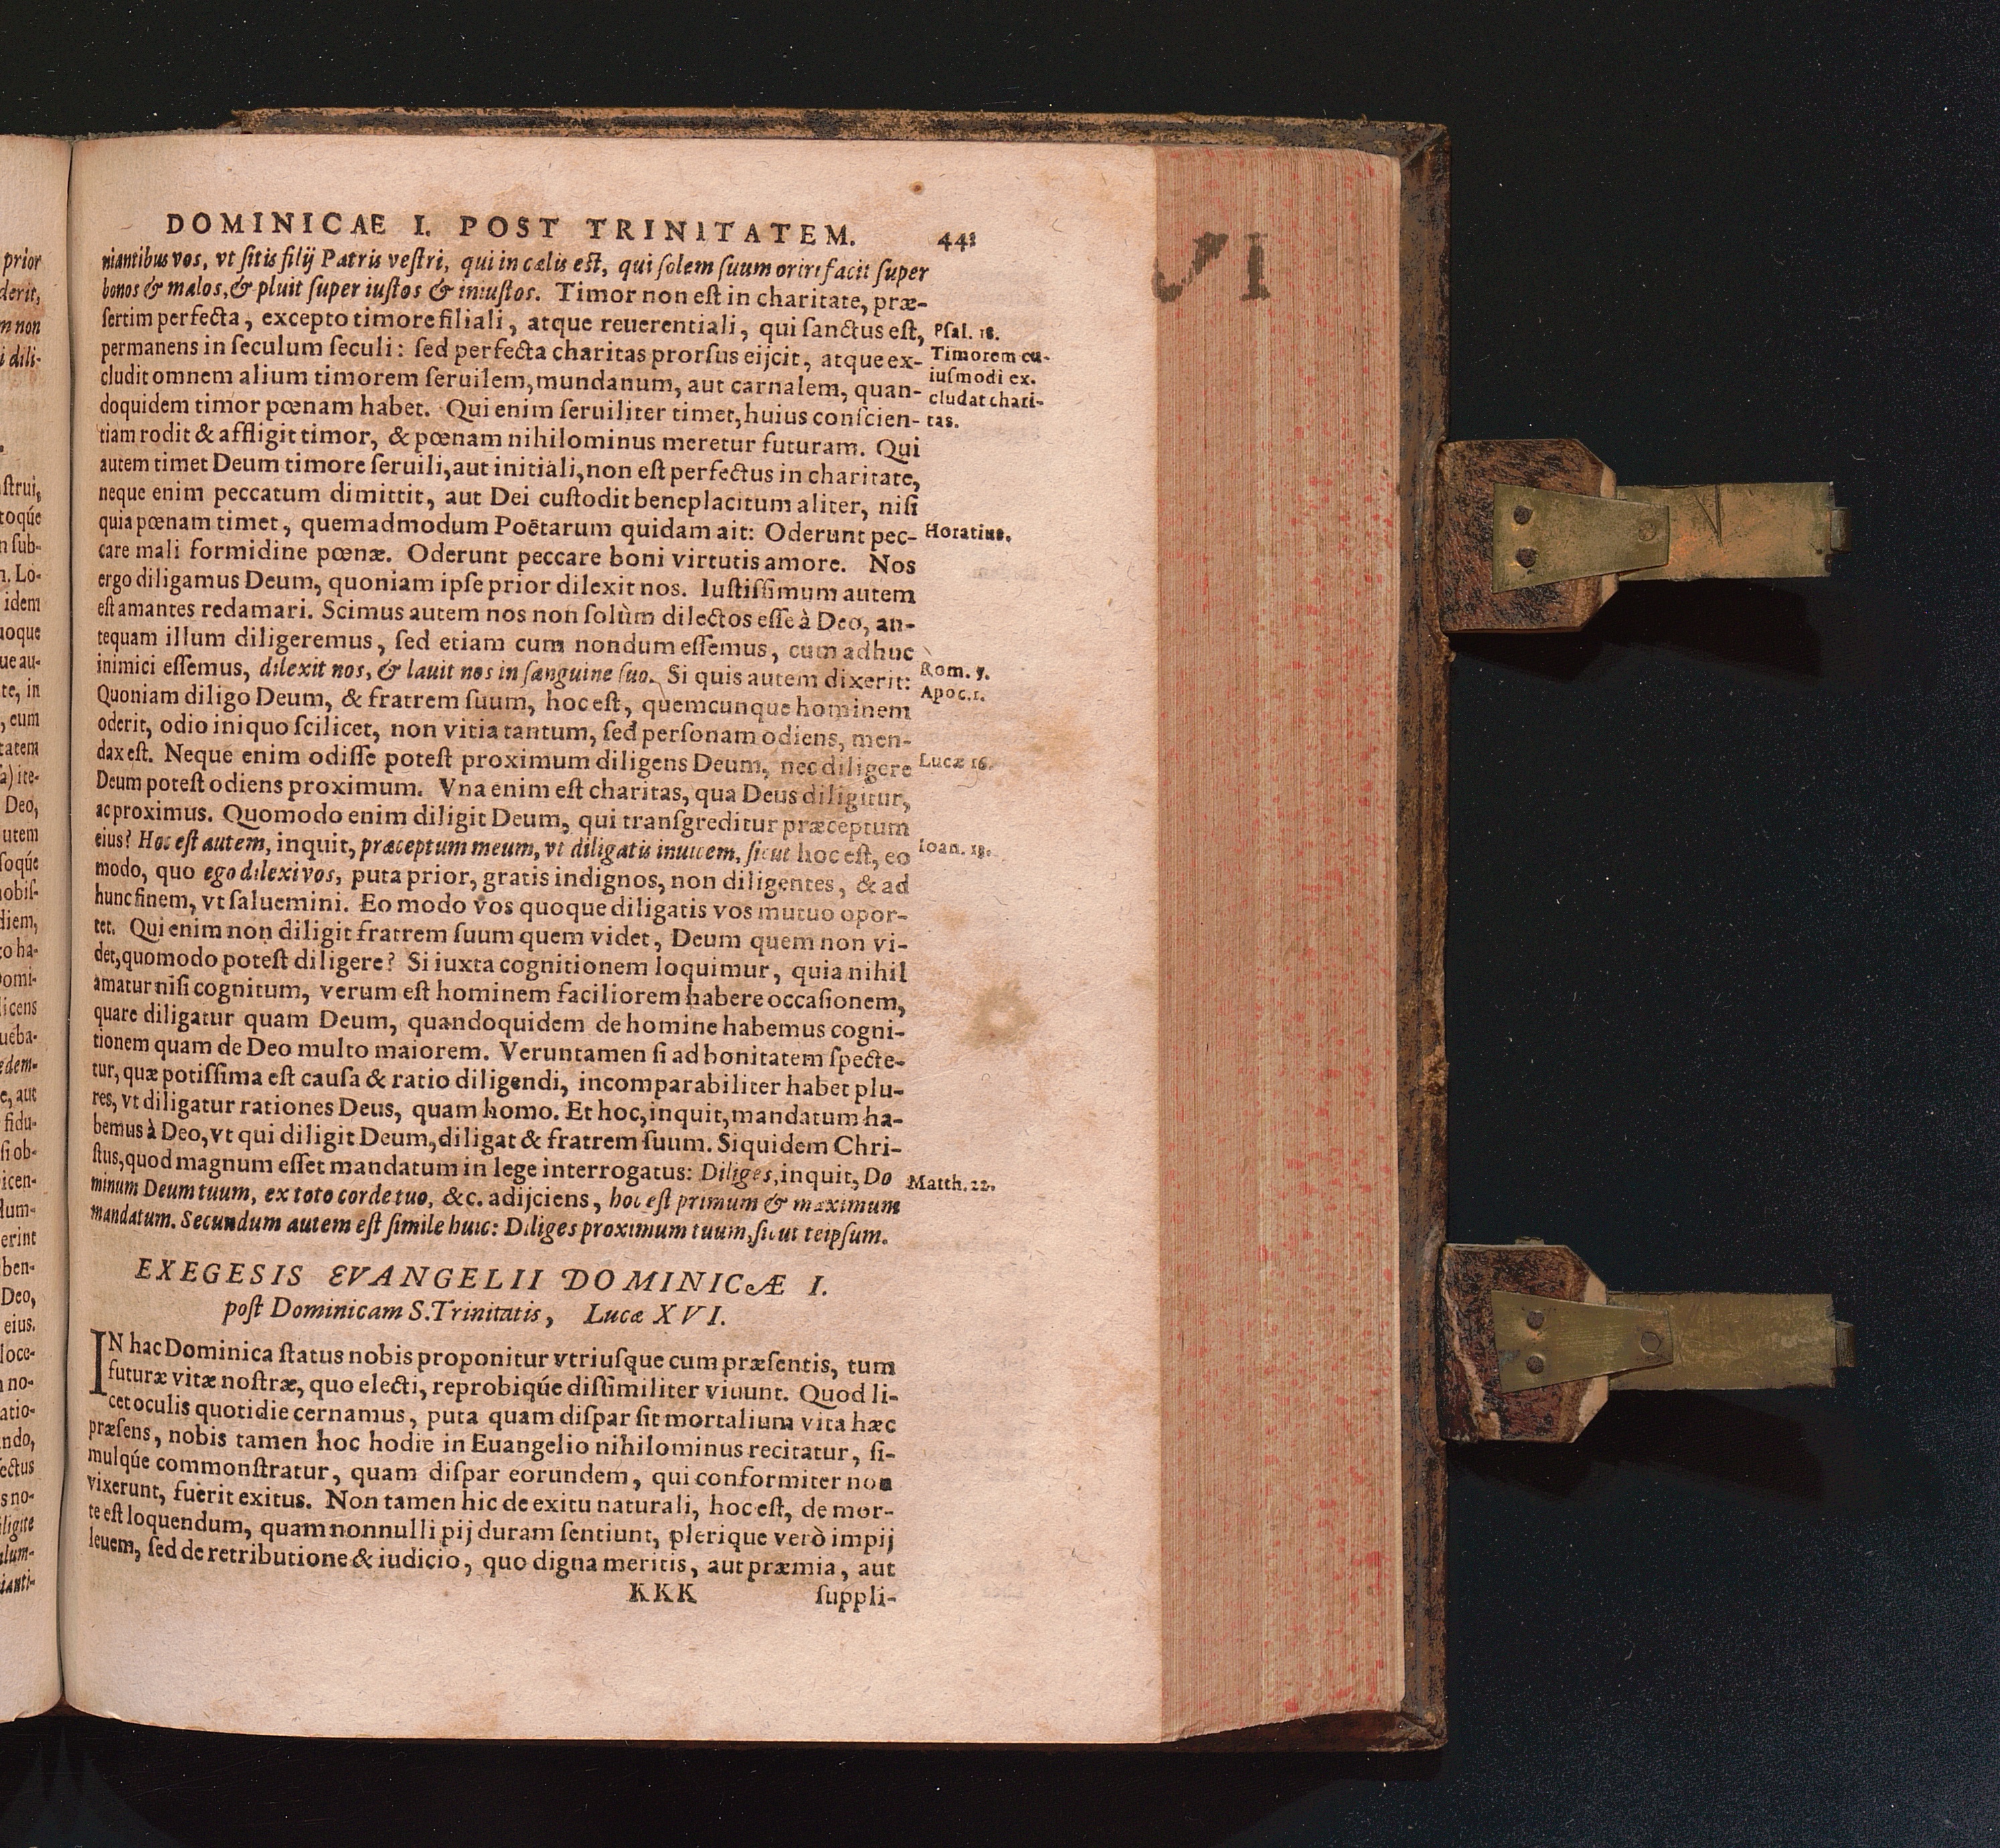 DOMINICAE I. POST TRINITATEM. 441
niantibus vos, vt ſitis filij Patris veſtri, qui in cælis eſt, qui ſolem ſuum oriri facit ſuper
bonos & malos, & pluit ſuper iuſtos & iniuſtos. Timor non eſt in charitate, præ-
ſertim perfecta, excepto timore filiali, atque reuerentiali, qui ſanctus eſt,
permanens in ſeculum ſeculi: ſed perfecta charitas prorſus eijcit, atque ex-
cludit omnem alium timorem ſeruilem, mundanum, aut carnalem, quan-
doquidem timor pœnam habet. Qui enim ſeruiliter timet, huius conſcien-
tiam rodit & affligit timor, & pœnam nihilominus meretur futuram. Qui
autem timet Deum timore ſeruili, aut initiali, non eſt perfectus in charitate,
neque enim peccatum dimittit, aut Dei cuſtodit beneplacitum aliter, niſi
quia pœnam timet, quemadmodum Poëtarum quidam ait: Oderunt pec-
care mali formidine pœnæ. Oderunt peccare boni virtutis amore. Nos
ergo diligamus Deum, quoniam ipſe prior dilexit nos. Iuſtiſſimum autem
eſt amantes redamari. Scimus autem nos non ſolùm dilectos eſſe à Deo, an-
tequam illum diligeremus, ſed etiam cum nondum eſſemus, cum adhuc
inimici eſſemus, dilexit nos, & lauit nos in ſanguine ſuo. Si quis autem dixerit:
Quoniam diligo Deum, & fratrem ſuum, hoc eſt, quemcunque hominem
oderit, odio iniquo ſcilicet, non vitia tantum, ſed perſonam odiens, men-
dax eſt. Neque enim odiſſe poteſt proximum diligens Deum, nec diligere
Deum poteſt odiens proximum. Vna enim eſt charitas, qua Deus diligitur,
ac proximus. Quomodo enim diligit Deum, qui tranſgreditur præceptum
eius? Hoc eſt autem, inquit, præceptum meum, vt diligatis inuicem, ſicut hoc eſt, eo
modo, quo ego dilexi vos, puta prior, gratis indignos, non diligentes, & ad
hunc finem, vt ſaluemini. Eo modo vos quoque diligatis vos mutuo opor-
tet. Qui enim non diligit fratrem ſuum quem videt, Deum quem non vi-
det, quomodo poteſt diligere? Si iuxta cognitionem loquimur, quia nihil
amatur niſi cognitum, verum eſt hominem faciliorem habere occaſionem,
quare diligatur quam Deum, quandoquidem de homine habemus cogni-
tionem quam de Deo multo maiorem. Veruntamen ſi ad bonitatem ſpecte-
tur, quæ potiſſima eſt cauſa & ratio diligendi, incomparabiliter habet plu-
res, vt diligatur rationes Deus, quam homo. Et hoc, inquit, mandatum ha-
bemus à Deo, vt qui diligit Deum, diligat & fratrem ſuum. Siquidem Chri-
ſtus, quod magnum eſſet mandatum in lege interrogatus: Diliges, inquit, Do
minum Deum tuum, ex toto corde tuo, &c. adijciens, hoc eſt primum & maximum
mandatum. Secundum autem eſt ſimile huic: Diliges proximum tuum, ſicut teipſum.
Pſal. 18.
Timorem cu-
iuſmodi ex.
cludat chari-
tas.
Horatius.
Rom. 5.
Apoc. 1.
Lucæ 16.
Ioan. 13.
Matth. 22.
EXEGESIS EVANGELII DOMINICÆ I.
poſt Dominicam S. Trinitatis, Lucæ XVI.
IN hac Dominica ſtatus nobis proponitur vtriuſque cum præſentis, tum
futuræ vitæ noſtræ, quo electi, reprobiqúe diſſimiliter viuunt. Quod li-
cet oculis quotidie cernamus, puta quam diſpar ſit mortalium vita hæc
præſens, nobis tamen hoc hodie in Euangelio nihilominus recitatur, ſi-
mulqúe commonſtratur, quam diſpar eorundem, qui conformiter non
vixerunt, fuerit exitus. Non tamen hic de exitu naturali, hoc eſt, de mor-
te eſt loquendum, quam nonnulli pij duram ſentiunt, plerique verò impij
leuem, ſed de retributione & iudicio, quo digna meritis, aut præmia, aut
KKK ſuppli-